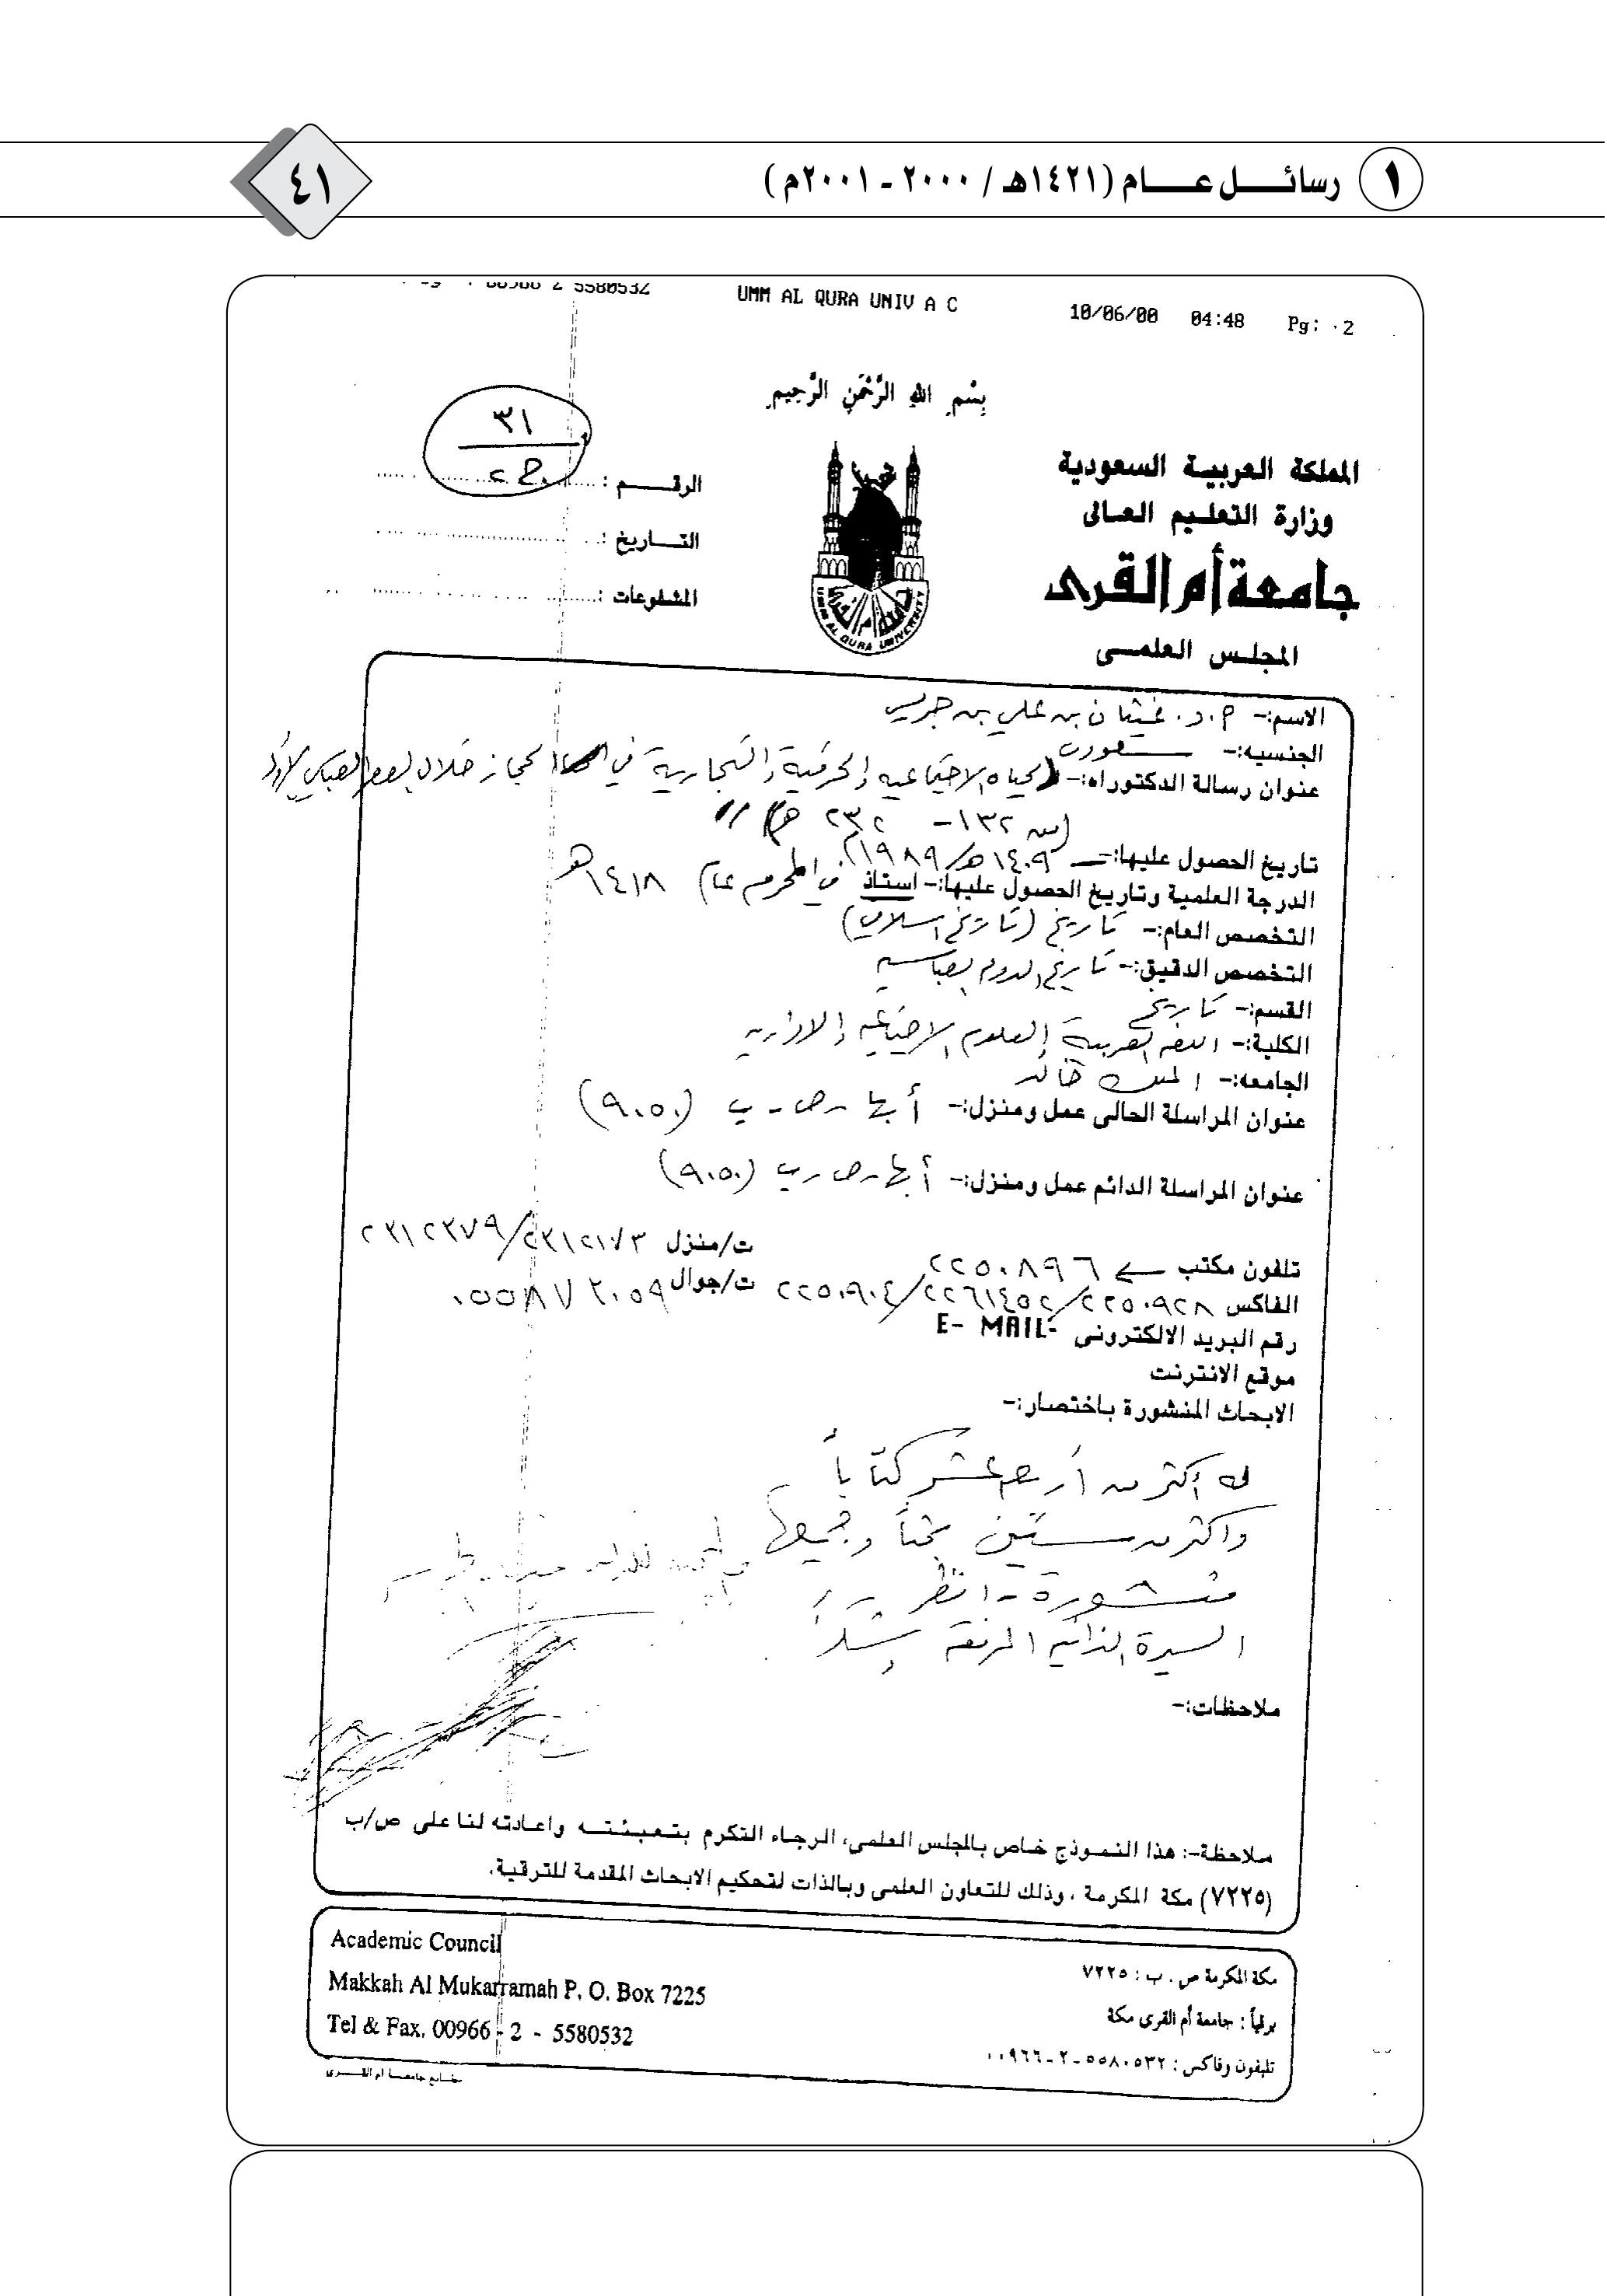 ١ رسائـــل عـــام (١٤٢١هـ / ٢٠٠٠ - ٢٠٠١م)
٤١
5580532 UMM AL QURA UNIV A C 10/06/00 04:48 Pg: 2
بِسْمِ اللهِ الرَّحْمنِ الرَّحِيمِ
المملكة العربية السعودية
وزارة التعليم العالى
جامعة أم القرى
المجلس العلمى
الرقـــم :
٣١
التـــاريخ :
المشفوعات :
UMM AL QURA UNIVERSITY
الاسم:- أ.د. غيثان بن علي بن جريس
الجنسيه:- سعودي
عنوان رسالة الدكتوراه:- الحياه الاجتماعيه والحرفية والتجارية في الحجاز خلال العصر العباسي الأول
(من ١٣٢ - ٢٣٢ هـ)
تاريخ الحصول عليها:- ١٤٠٩هـ/١٩٨٩م
الدرجة العلمية وتاريخ الحصول عليها:- استاذ في المحرم عام ١٤١٨هـ
التخصص العام:- تاريخ (تاريخ اسلامي)
التخصص الدقيق:- تاريخ الدولة العباسيه
القسم:- تاريخ
الكلية:- اللغة العربية والعلوم الاجتماعيه والاداريه
الجامعه:- الملك خالد
عنوان المراسلة الحالى عمل ومنزل:- أبها - ص - ب (٩٠٥٠)
عنوان المراسلة الدائم عمل ومنزل:- أبها - ص - ب (٩٠٥٠)
تلفون مكتب ٢٢٥٠٨٩٦ ت/منزل ٢٣١٢١٧٣/٢٣١٢٣٧٩
الفاكس ٢٢٥٠٩٢٨/٢٢٦١٤٥٢/٢٢٥٠٩٠٤ ت/جوال ٠٥٥٨٧٢٠٥٩
رقم البريد الالكترونى E- MAIL-
موقع الانترنت
الابحاث المنشورة باختصار:-
له أكثر من أربعة عشر كتاباً
واكثر من ستين بحثاً وجميعها
منشورة - انظر
السيرة الذاتيه المرفقة
ملاحظات:-
ملاحظة:- هذا النموذج خاص بالمجلس العلمى، الرجاء التكرم بتعبئته واعادته لنا على ص/ب
(٧٢٢٥) مكة المكرمة ، وذلك للتعاون العلمى وبالذات لتحكيم الابحاث المقدمة للترقية.
مكة المكرمة ص . ب : ٧٢٢٥
برقياً : جامعة أم القرى مكة
تليفون وفاكس : ٥٥٨٠٥٣٢-٢-٠٠٩٦٦
Academic Council
Makkah Al Mukarramah P. O. Box 7225
Tel & Fax. 00966 - 2 - 5580532
مطابع جامعة ام القرى